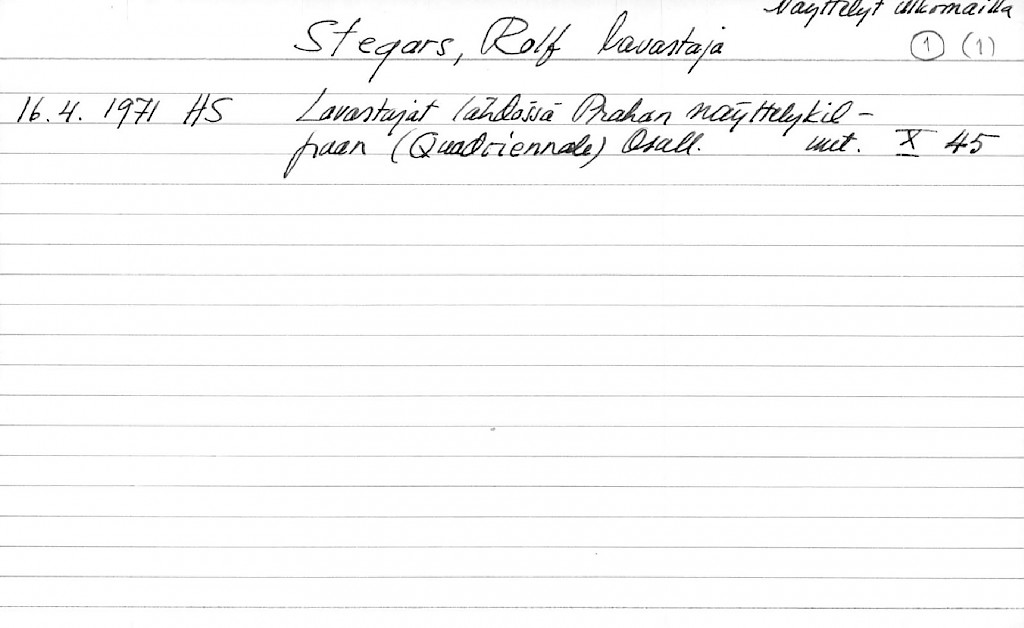 Näyttelyt ulkomailla
Stegars, Rolf lavastaja 1 (1)
16.4. 1971 HS Lavastajat lähdössä Prahan näyttelykil-
paan (Quadriennale) Osall. met. X 45